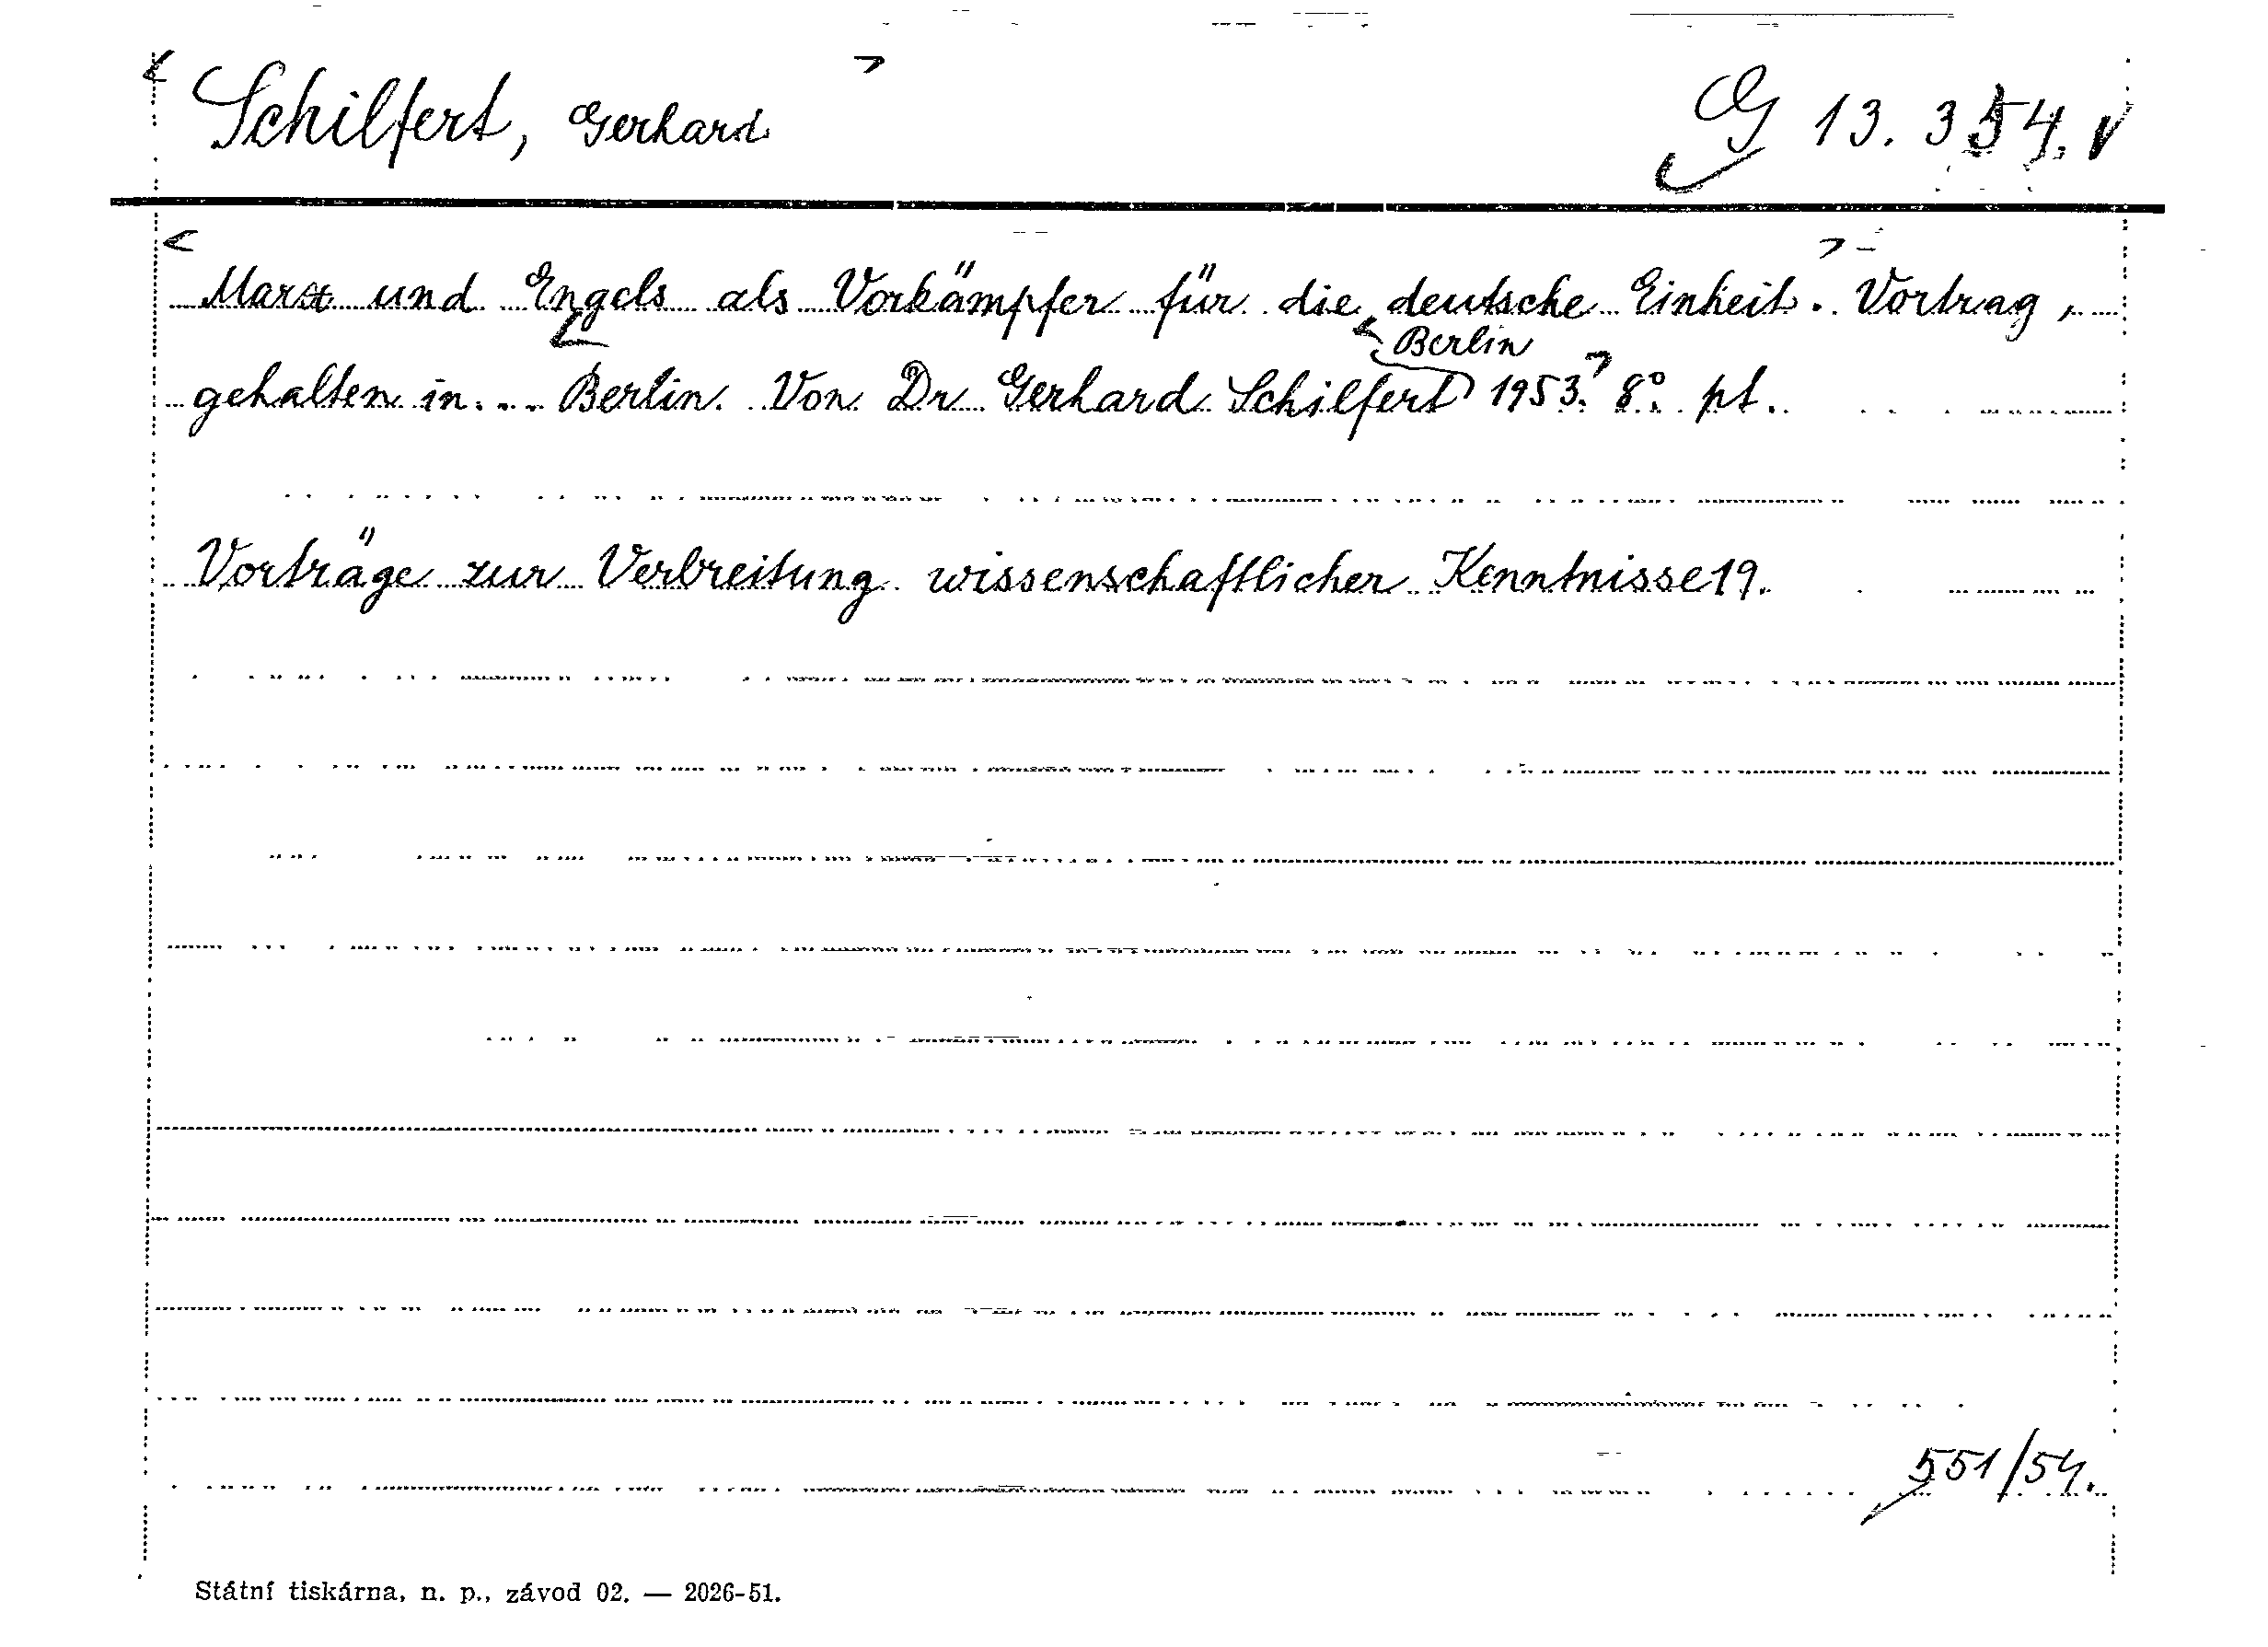 Schilfert, Gerhard
G 13.354.
Marx und Engels als Vorkämpfer für die deutsche Einheit. Vortrag,
Berlin
gehalten in... Berlin. Von Dr Gerhard Schilfert 1953. 8° pt.
Vorträge zur Verbreitung wissenschaftlicher Kenntnisse 19.
551/54.
Státní tiskárna, n. p., závod 02. — 2026-51.